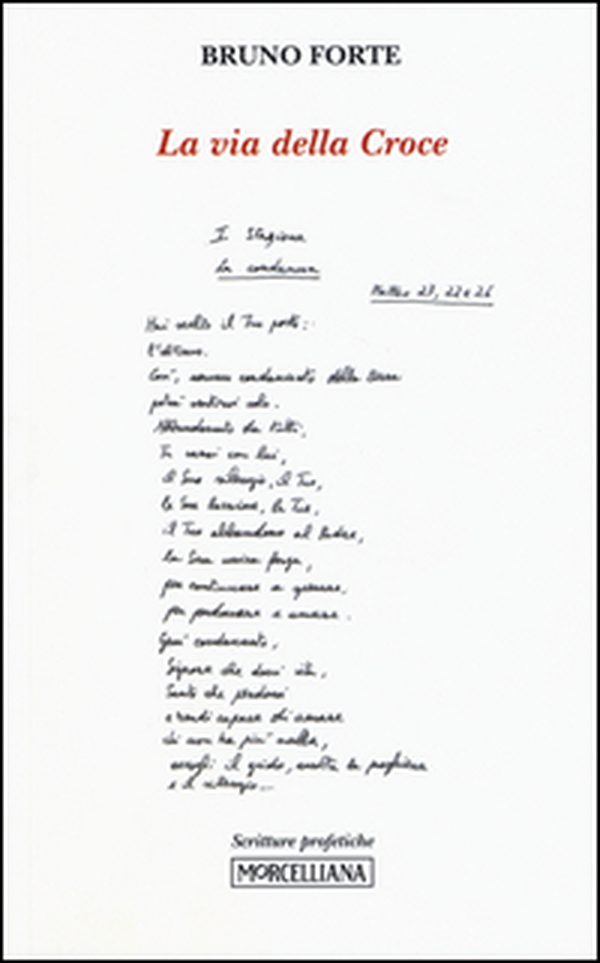 BRUNO FORTE
La via della Croce
I Stazione
La condanna
Matteo 27, 22 e 26
Hai scelto il Tuo posto:
l'ultimo.
Così, nessun condannato della terra
potrà sentirsi solo.
Abbandonato da tutti,
Tu sarai con lui,
il Suo silenzio, il Tuo,
la Sua, la Tua,
il Tuo abbandono al Padre,
la Sua unica forza,
per continuare a
per perdonare e amare.
Gesù condannato,
Signore che dai vita,
Santo che perdoni
e rendi capace di amare
chi non ha più nulla,
accogli il grido, ascolta la preghiera
e il silenzio...
Scritture profetiche
MORCELLIANA